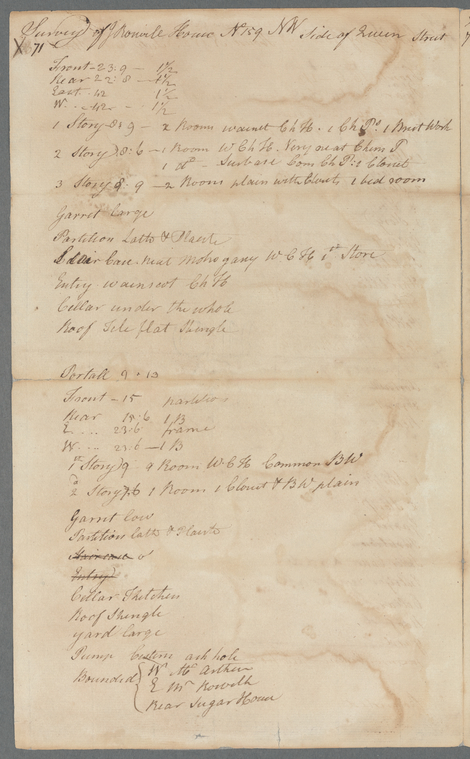 Survey of J Ronvill House No 159 NW Side of Queen Street
71
Front - 23:9 - 1½
Rear 22:8 - 1½
East 42 1½
W .. 42 .. 1½
1 Story 8:9 - 2 Rooms wainst Ch H. 1 Ch Ps 1 Brick Work
2 Story 8:6 - 1 Room W Ch H. Very neat Chim P
1 do - Surbase Com Ch P: 1 Closit
3 Story 8:9 - 2 Rooms plain with Closits, 1 bed room
Garret large
Partition Latts & Plaistr
Stair Case Neat Mohogany W C H 1st Store
Entry wainscot Ch H
Cellar under the whole
Roof Tile flat Shingle
Portall 9 : 13
Front - 15 partition
Rear 15:6 1 B
E ... 23:6 frame
W. .. 23:6 - 1 B
1st Story 9 Room W C H Common BW
2d Story 7:6 1 Room 1 Closit & BW plain
Garret low
Partitions Latts & Plaistr
Staircase
Entry
Cellar Kitchen
Roof Shingle
Yard large
Pump Cistern ash hole
Bounded W Mc Arthur
E Mr Rowell
Rear Sugar House